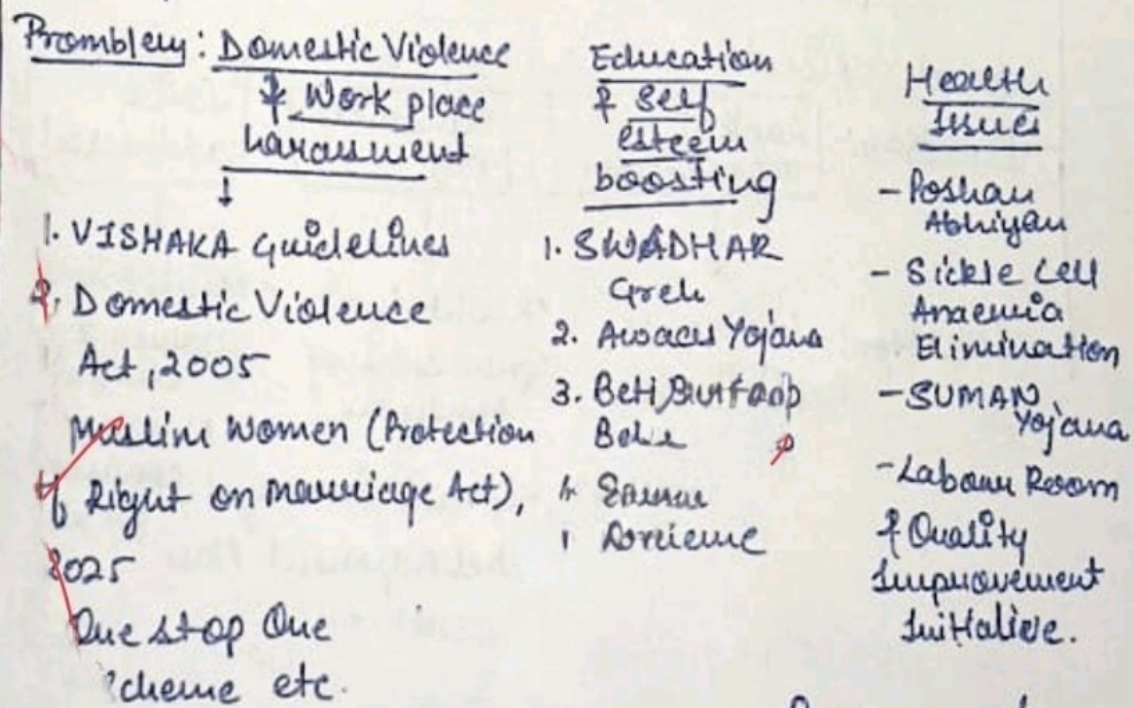 Promblem : Domestic Violence
& Work place
harassment
↓
1. VISHAKA Guidelines
2. Domestic Violence
Act, 2005
Muslim Women (Protection
of Right on marriage Act),
2025
One stop One
scheme etc.
Education
& Self
esteem
boosting
1. SWADHAR
Greh
2. Yojana
3. Beti
4.
Health
Issues
- Poshan
Abhiyan
- Sickle Cell
Anaemia
Elimination
- SUMAN
Yojana
- Labour Room
& Quality
Improvement
Initiative.